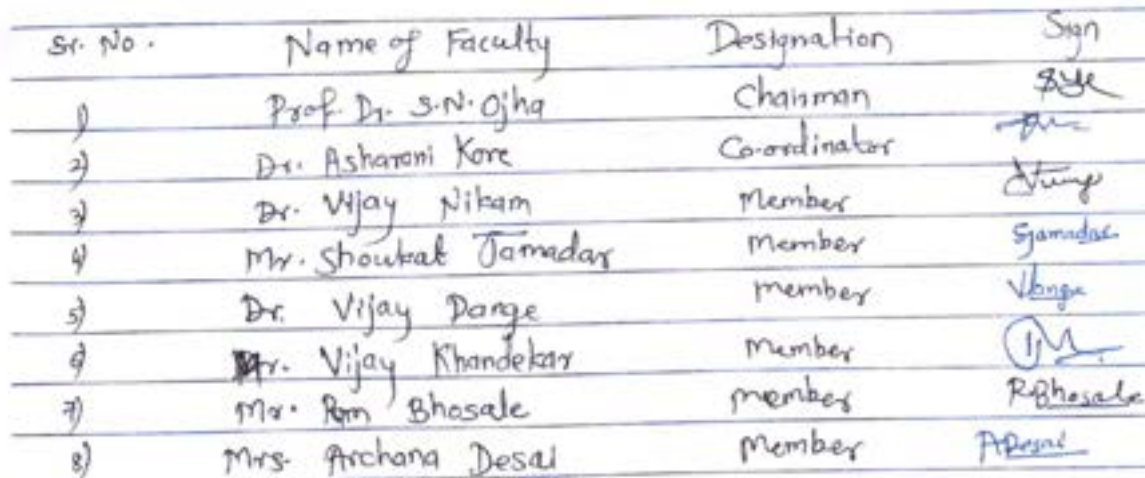 Sr. No. Name of Faculty Designation Sign
1) Prof. Dr. S.N. Ojha Chairman
2) Dr. Asharani Kore Co-ordinator
3) Dr. Vijay Nikam Member
4) Mr. Shoukat Jamadar Member SJamadar
5) Dr. Vijay Dange member VDange
6) Mr. Vijay Khandekar Member
7) Mr. Ram Bhosale member RBhosale
8) Mrs. Archana Desai Member ADesai